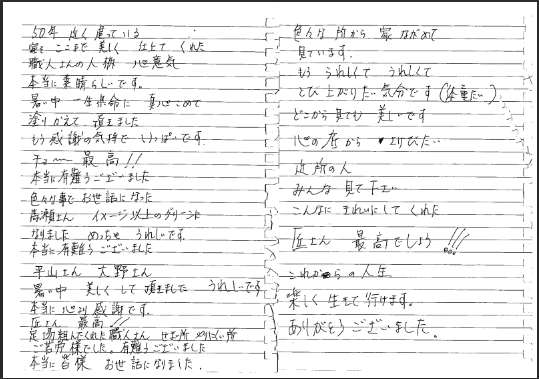 50年 近く 経っている
家を ここまで 美しく 仕上て くれた
職人さんの人柄 心意気
本当に素晴らしいです。
暑い中 一生県命に 真心こめて
塗りかえて 頂きました
もう感謝の気持で いっぱいです。
チョ〜〜 最高!!
本当に有難うございました
色々な事で お世話になった
高瀬さん イメージ以上のグリーンに
なりました めっちゃ うれしいです。
本当に有難うございました
平山さん 大野さん
暑い中 美しくして頂きました うれしいです
本当に心より感謝です。
匠さん 最高!!
足場組んでくれた職人さん せまい所 やりにくい所
ご苦労様でした。有難うございました
本当に皆様 お世話になりました.
色んな所から 家 ながめて
見ています.
もう うれしくて うれしくて
とび上がりたい気分です(体重たい)
どこから見ても 美しいです
心の底から さけびたい
近所の人
みんな 見て下さい
こんなに きれいにして くれた
匠さん 最高でしょう!!!
これからの人生、
楽しく 生きて行けます。
ありがとうございました。